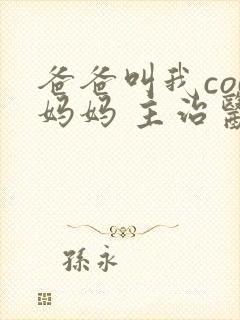 爸爸叫我co
妈妈 主治醫
孫永